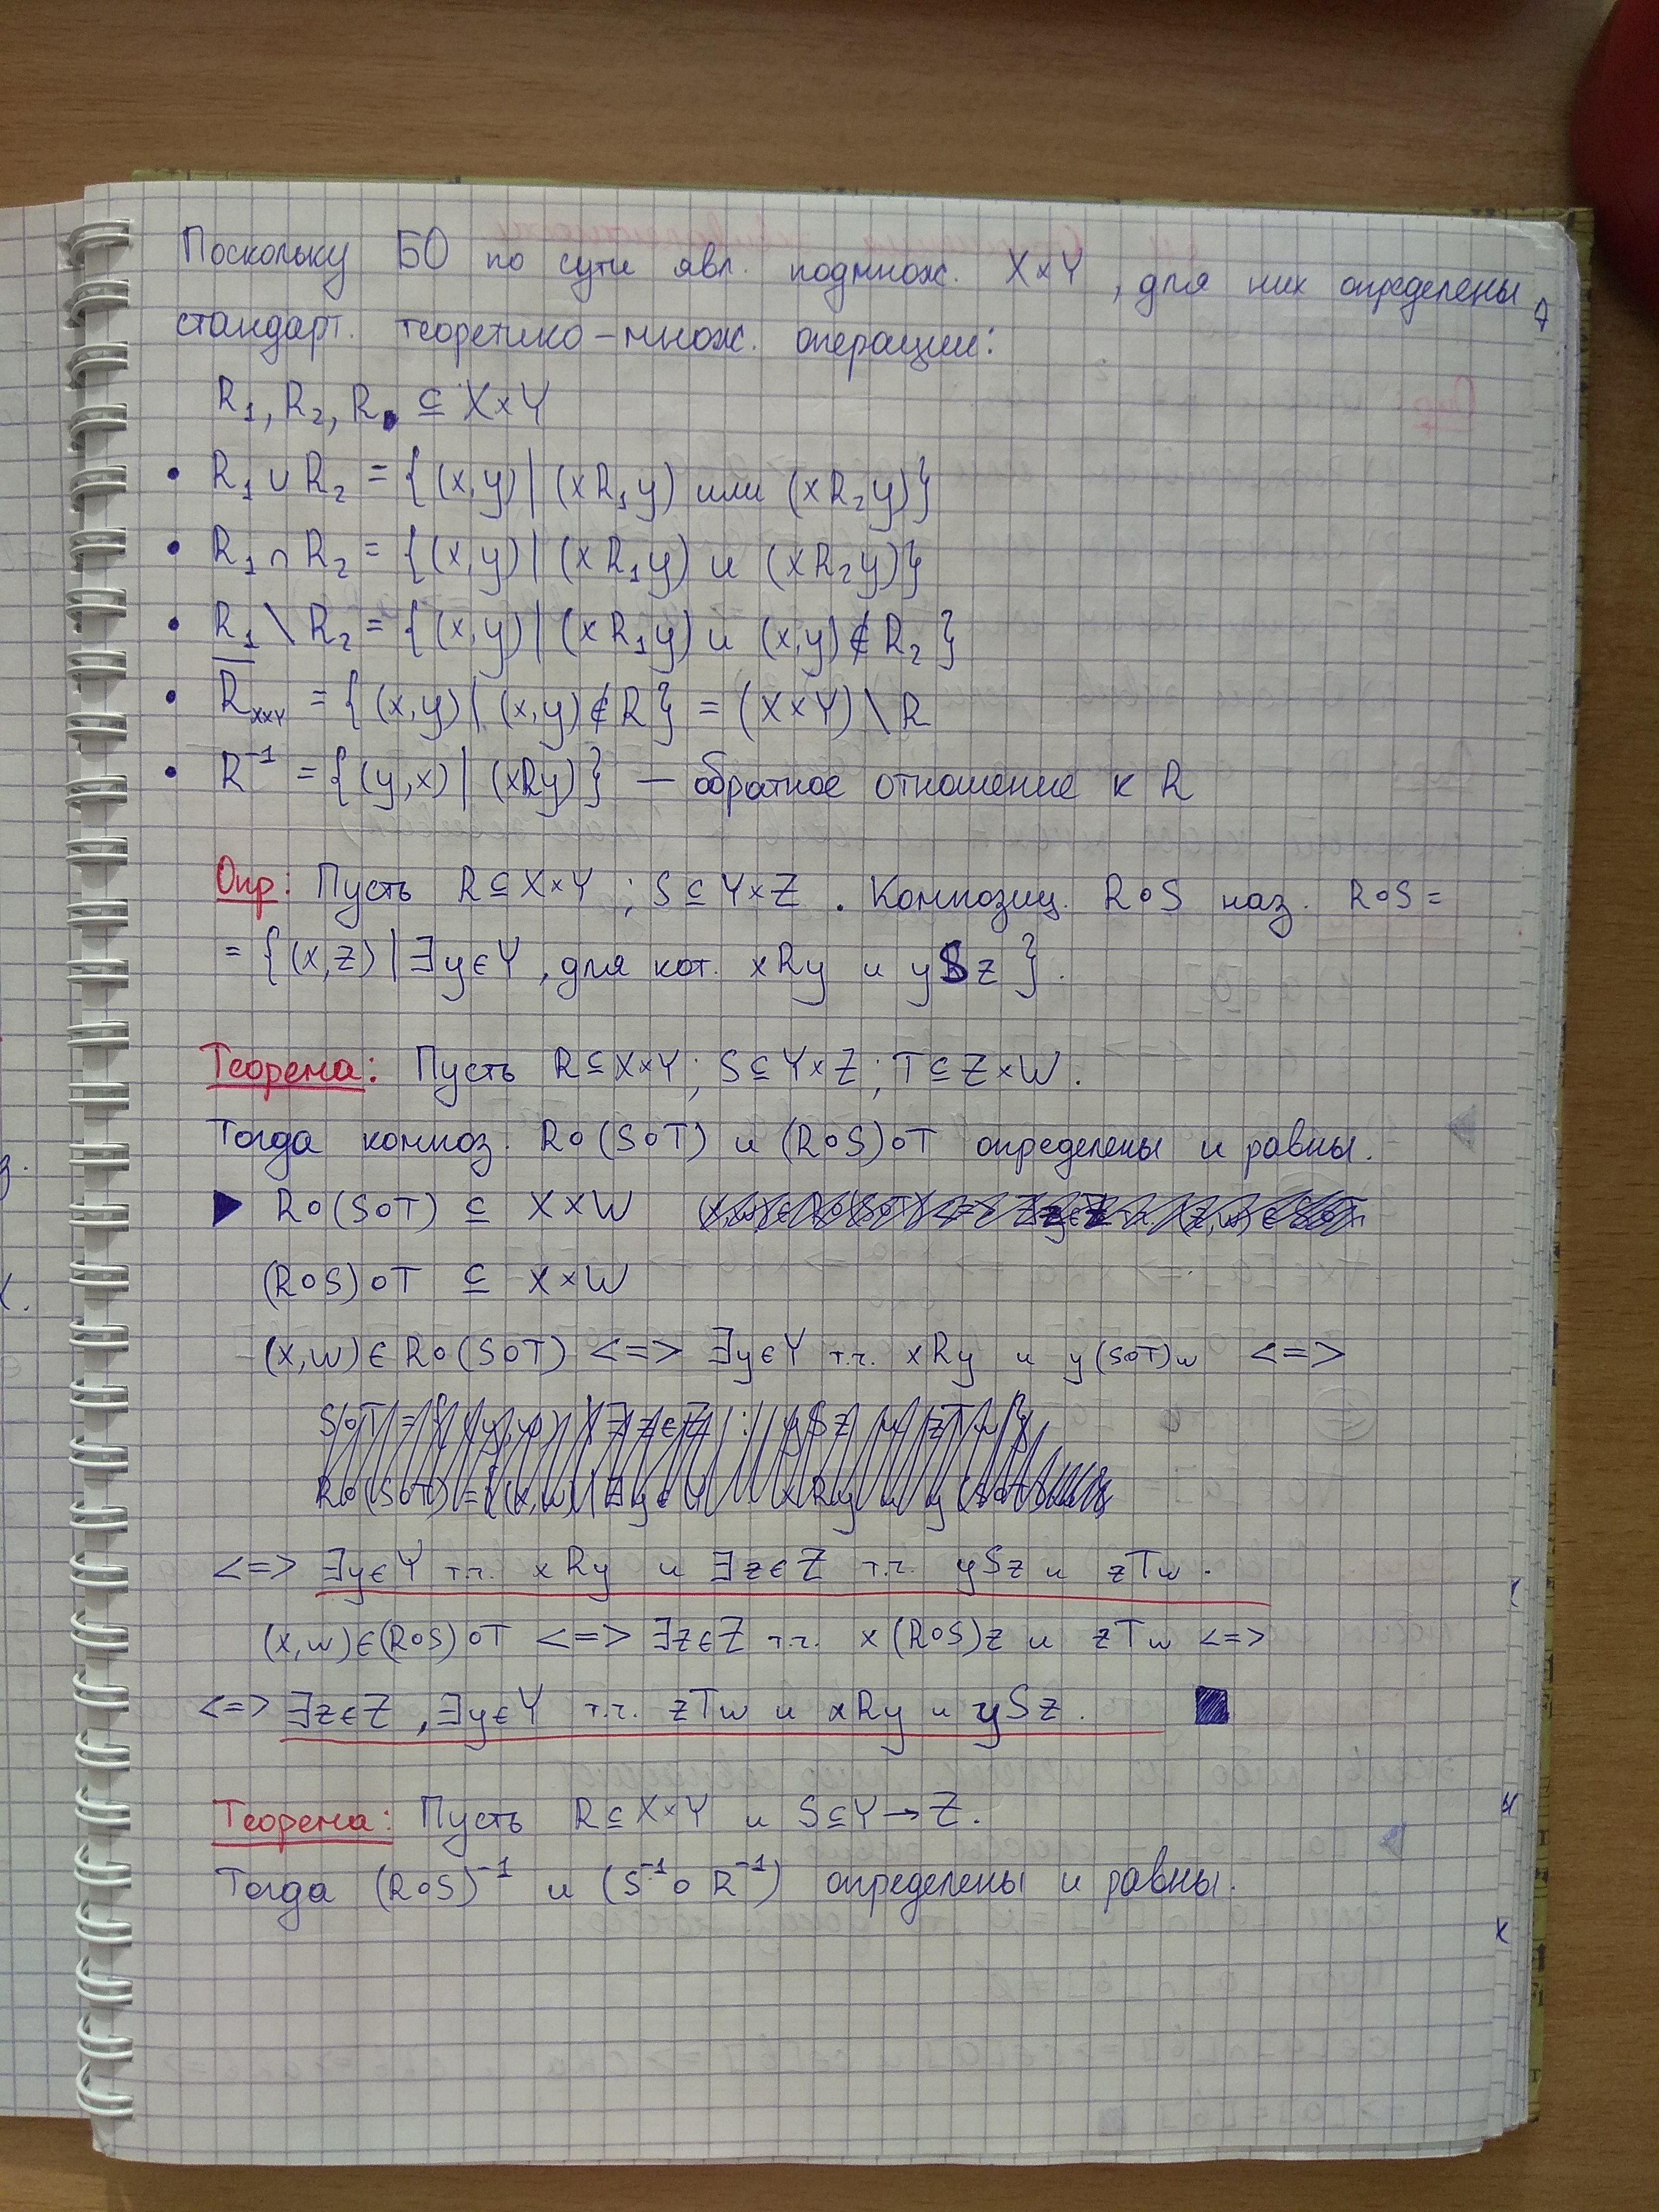 Поскольку БО по сути явл. подмнож. X×Y, для них определены
стандарт. теоретико-множ. операции:
R₁, R₂, R ⊆ X×Y
• R₁ ∪ R₂ = {(x,y) | (xR₁y) или (xR₂y)}
• R₁ ∩ R₂ = {(x,y) | (xR₁y) и (xR₂y)}
• R₁ \ R₂ = {(x,y) | (xR₁y) и (x,y) ∉ R₂}
• R̅_X×Y = {(x,y) | (x,y) ∉ R} = (X×Y) \ R
• R⁻¹ = {(y,x) | (xRy)} — обратное отношение к R
Опр: Пусть R⊆X×Y ; S⊆Y×Z . Композиц. R∘S наз. R∘S =
= {(x,z) | ∃y∈Y, для кот. xRy и ySz}.
Теорема: Пусть R⊆X×Y; S⊆Y×Z; T⊆Z×W.
Тогда композ. R∘(S∘T) и (R∘S)∘T определены и равны.
▶ R∘(S∘T) ⊆ X×W
(R∘S)∘T ⊆ X×W
(x,w)∈R∘(S∘T) <=> ∃y∈Y т.ч. xRy и y(S∘T)w <=>
<=> ∃y∈Y т.ч. xRy и ∃z∈Z т.ч. ySz и zTw.
(x,w)∈(R∘S)∘T <=> ∃z∈Z т.ч. x(R∘S)z и zTw <=>
<=> ∃z∈Z, ∃y∈Y т.ч. zTw и xRy и ySz. ■
Теорема: Пусть R⊆X×Y и S⊆Y→Z.
Тогда (R∘S)⁻¹ и (S⁻¹∘R⁻¹) определены и равны.